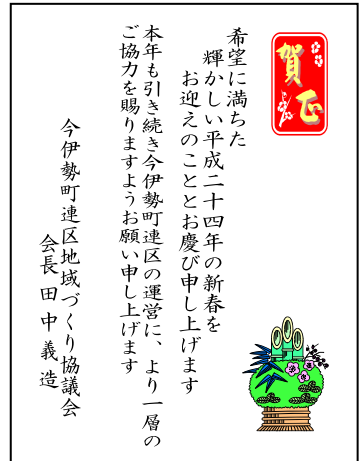 賀正
希望に満ちた
輝かしい平成二十四年の新春を
お迎えのこととお慶び申し上げます
本年も引き続き今伊勢町連区の運営に、より一層の
ご協力を賜りますようお願い申し上げます
今伊勢町連区地域づくり協議会
会長 田中義造